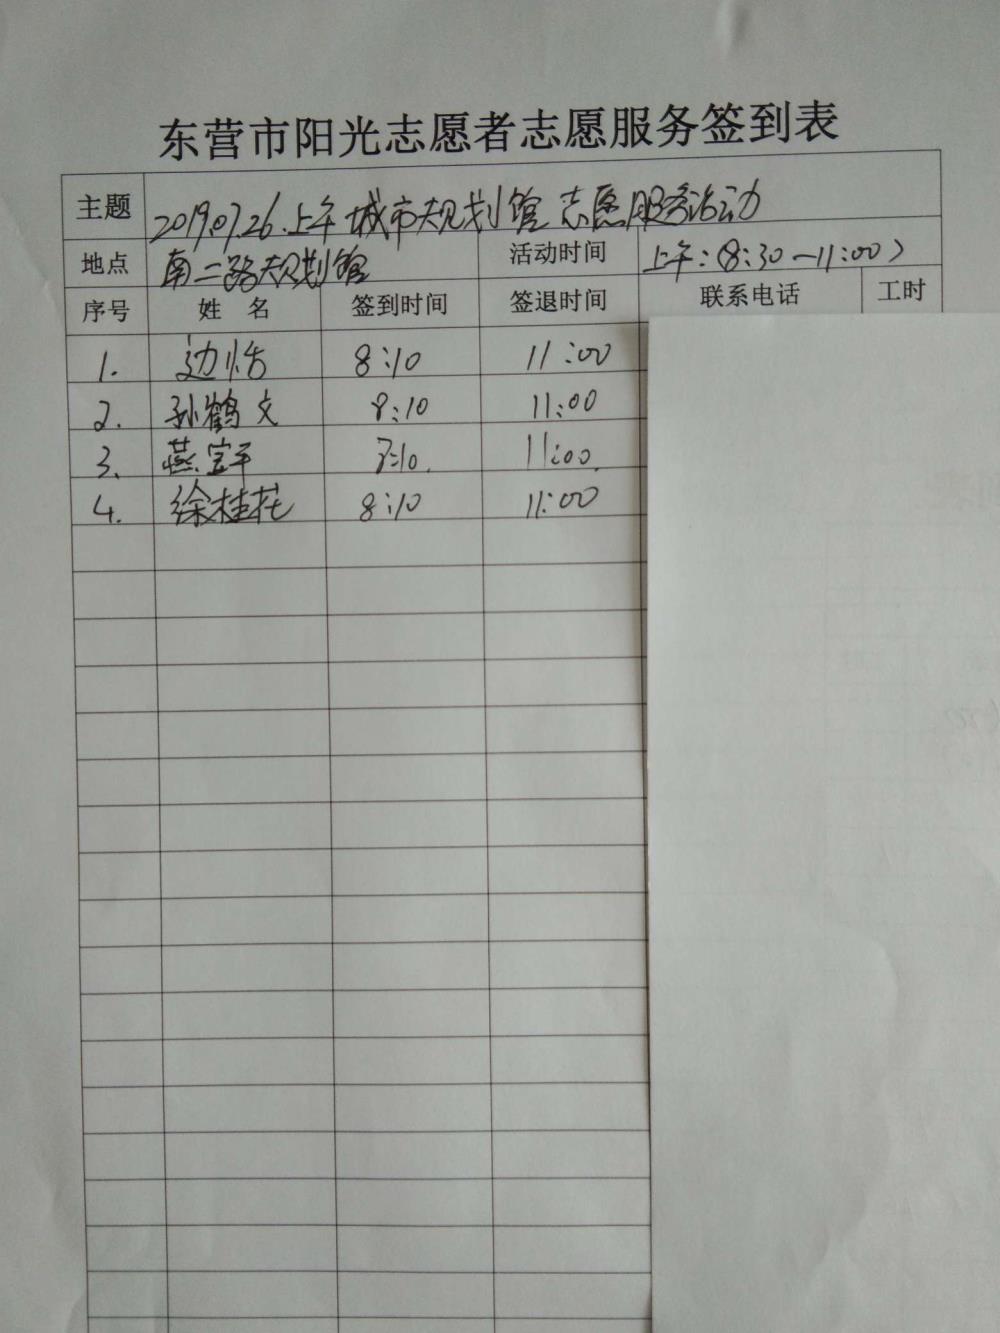 东营市阳光志愿者志愿服务签到表
主题 2019.07.26.上午 城市规划馆 志愿服务活动
地点 南二路规划馆 活动时间 上午:(8:30—11:00)
序号 姓 名 签到时间 签退时间 联系电话 工时
1. 边恬 8:10 11:00
2. 孙鹤文 8:10 11:00
3. 燕宝平 :10. 11:00.
4. 徐桂花 8:10 11:00